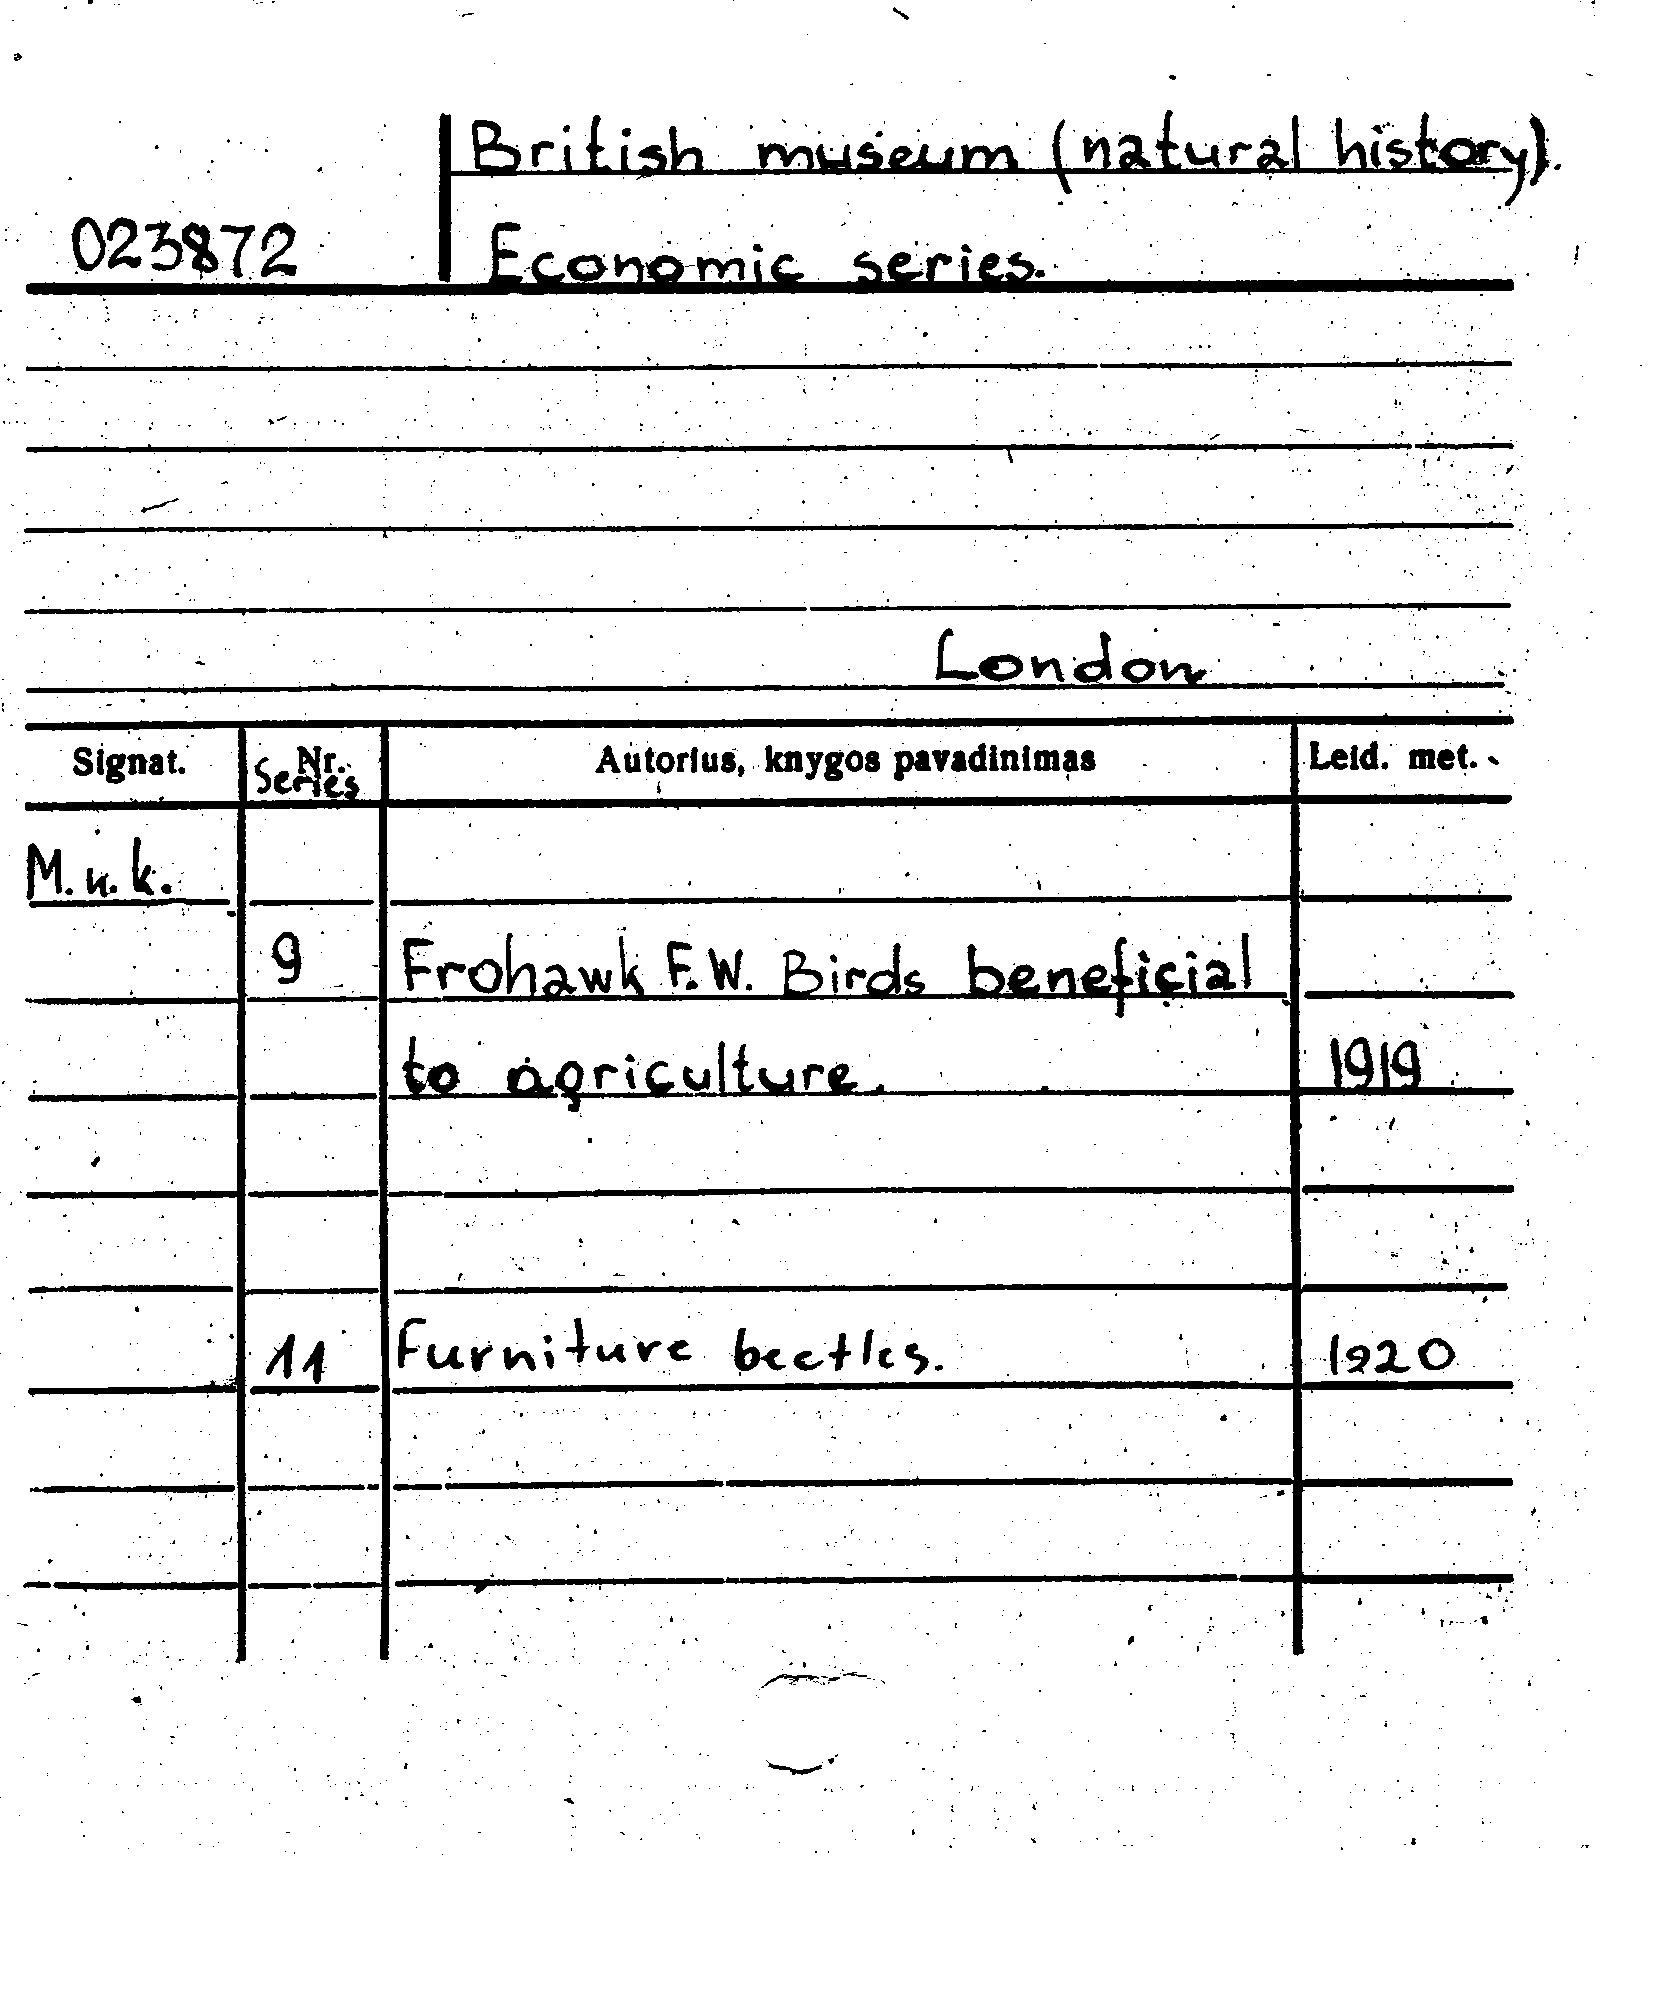 British museum (natural history).
023872
Economic series.
London
Signat. Nr. Series Autorius, knygos pavadinimas Leid. met.
M.u.k.
9 Frohawk F.W. Birds beneficial
to agriculture. 1919
11 Furniture beetles. 1920